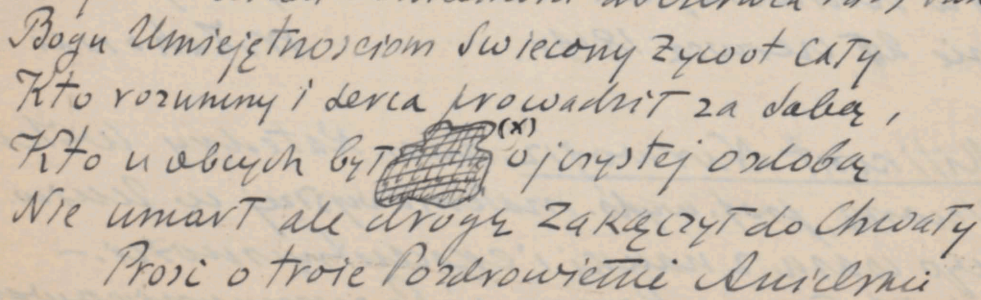 Bogu Umiejętnosciom Swiecony Zywot Cały
Kto rozumny i serca prowadził za sobą,
Kto u obcych był (x) ojczystej ozdobą
Nie umarł ale drogę zakączył do Chwały
Prosi o troie Pozdrowietnie Anielskie